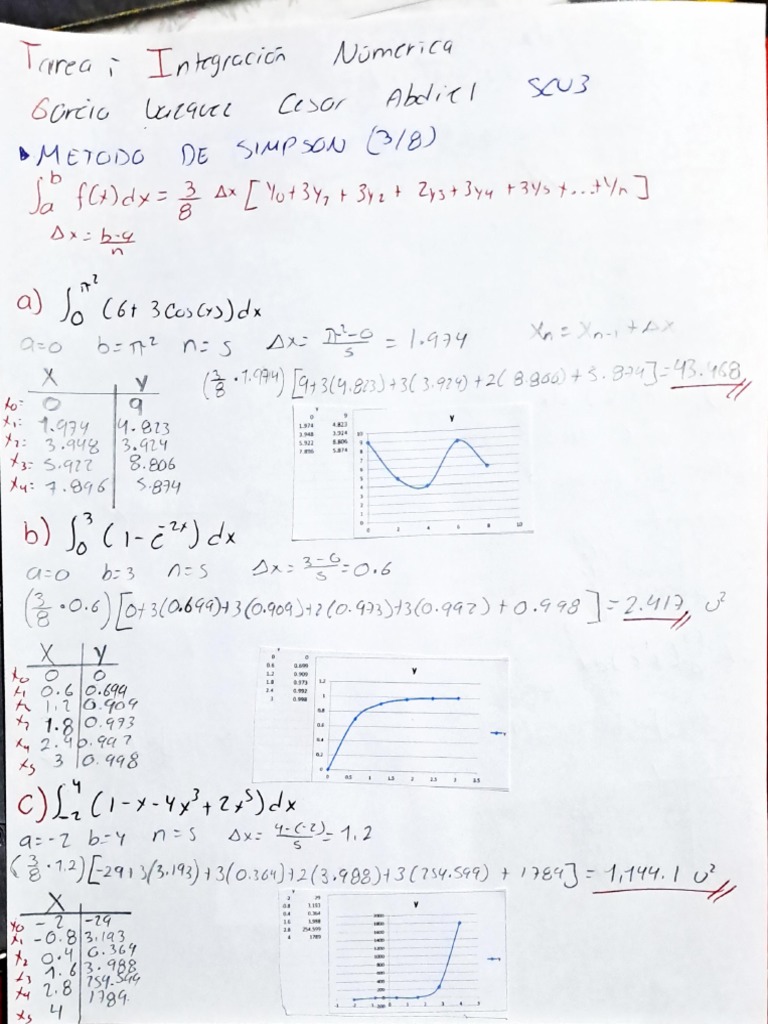 Tarea: Integración Númerica
Garcia Vazquez Cesar Abdiel 5CV3
METODO DE SIMPSON (3/8)
∫ₐᵇ f(x)dx = 3/8 Δx [y₀+3y₁+3y₂+2y₃+3y₄+3y₅+...+yₙ]
Δx = b-a/n
a) ∫₀^π² (6+3cos(x))dx
a=0 b=π² n=5 Δx= π²-0/5 = 1.974 Xn = Xn-1 + Δx
(3/8 · 1.974) [9+3(4.823)+3(3.924)+2(8.806)+5.874]=43.468
X y
x₀: 0 9
x₁: 1.974 4.823
x₂: 3.948 3.924
x₃: 5.922 8.806
x₄: 7.896 5.874
y
0 9
1.974 4.823
3.948 3.924
5.922 8.806
7.896 5.874
10
9
8
7
6
5
4
3
2
1
0
0 2 4 6 8 10
b) ∫₀³ (1-e⁻²ˣ)dx
a=0 b=3 n=5 Δx= 3-0/5 = 0.6
(3/8 · 0.6) [0+3(0.699)+3(0.909)+2(0.973)+3(0.992)+0.998] = 2.417 u²
X y
x₀ 0 0
x₁ 0.6 0.699
x₂ 1.2 0.909
x₃ 1.8 0.973
x₄ 2.4 0.992
x₅ 3 0.998
y
0 0
0.6 0.699
1.2 0.909
1.8 0.973
2.4 0.992
3 0.998
1.2
1
0.8
0.6
0.4
0.2
0
0 0.5 1 1.5 2 2.5 3 3.5
c) ∫₋₂⁴ (1-x-4x³+2x⁵)dx
a=-2 b=4 n=5 Δx= 4-(-2)/5 = 1.2
(3/8 · 1.2) [-29+3(3.193)+3(0.364)+2(3.988)+3(254.599)+1789] = 1,144.1 u²
X
x₀ -2 -29
x₁ -0.8 3.193
x₂ 0.4 0.364
x₃ 1.6 3.988
x₄ 2.8 254.599
x₅ 4 1789
y